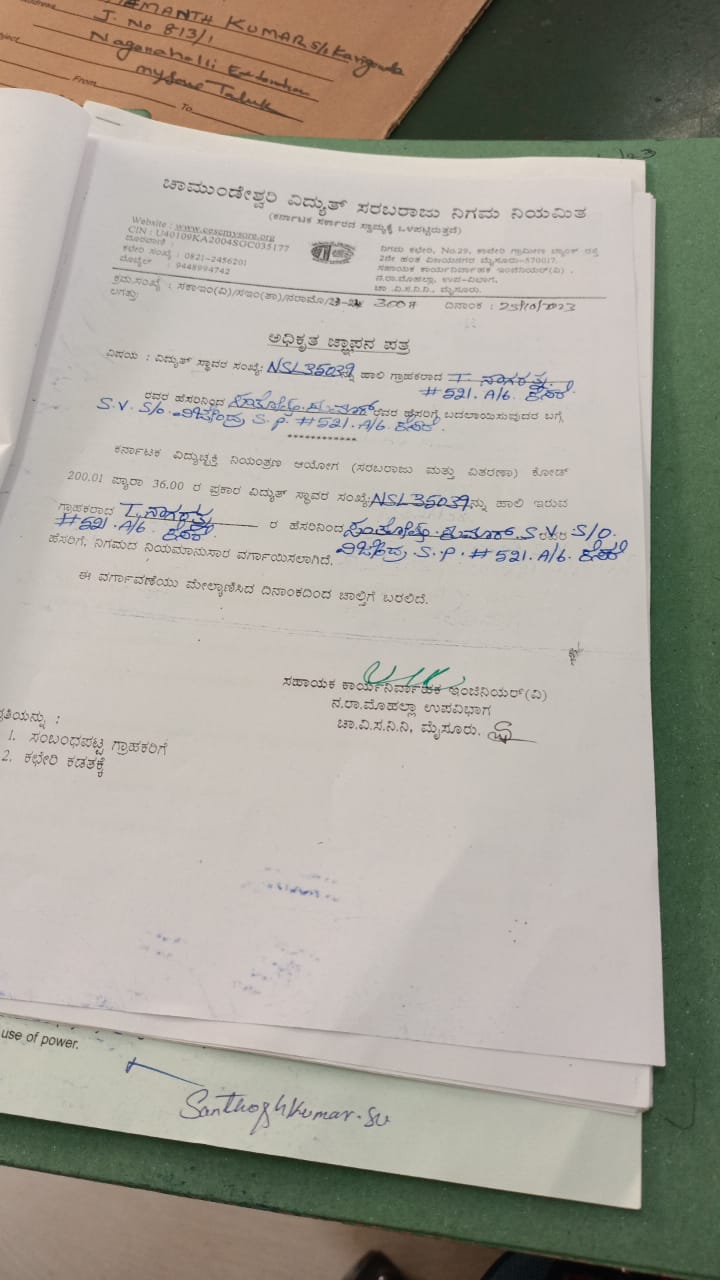 HEMANTH KUMAR S/o Karigowda
J. No 813/1
Naganahalli
mysore Taluk
From
To
ಚಾಮುಂಡೇಶ್ವರಿ ವಿದ್ಯುತ್ ಸರಬರಾಜು ನಿಗಮ ನಿಯಮಿತ
(ಕರ್ನಾಟಕ ಸರ್ಕಾರದ ಸ್ವಾಮ್ಯಕ್ಕೆ ಒಳಪಟ್ಟಿರುತ್ತದೆ)
Website : www.cescmysore.org
CIN : U40109KA2004SGC035177
ದೂರವಾಣಿ :
ಕಛೇರಿ ಸಂಖ್ಯೆ : 0821-2456201
ಮೊಬೈಲ್ : 9448994742
ನಿಗಮ ಕಛೇರಿ, No.29, ಕಾವೇರಿ ಗ್ರಾಮೀಣ ಬ್ಯಾಂಕ್ ರಸ್ತೆ
2ನೇ ಹಂತ ವಿಜಯನಗರ ಮೈಸೂರು-570017.
ಸಹಾಯಕ ಕಾರ್ಯನಿರ್ವಾಹಕ ಇಂಜಿನಿಯರ್(ವಿ) .
ನ.ರಾ.ಮೊಹಲ್ಲಾ, ಉಪ-ವಿಭಾಗ,
ಚಾ .ವಿ.ಸ.ನಿ.ನಿ., ಮೈಸೂರು.
ಕ್ರಮ.ಸಂಖ್ಯೆ : ಸಕಾಇಂ(ವಿ)/ಸಇಂ(ತಾ)/ನರಾಮೊ/23-24 ದಿನಾಂಕ : 25/10/2023
ಲಗತ್ತು:
ಅಧಿಕೃತ ಜ್ಞಾಪನ ಪತ್ರ
ವಿಷಯ : ವಿದ್ಯುತ್ ಸ್ಥಾವರ ಸಂಖ್ಯೆ: NSL35039ನ್ನು ಹಾಲಿ ಗ್ರಾಹಕರಾದ T. ನಾಗರತ್ನ
#521. A/6.
ರವರ ಹೆಸರಿನಿಂದ ಸಂತೋಷ್ ಕುಮಾರ್ ರವರ ಹೆಸರಿಗೆ ಬದಲಾಯಿಸುವುದರ ಬಗ್ಗೆ
S.V. S/o. S.P. #521. A/6.
************
ಕರ್ನಾಟಕ ವಿದ್ಯುಚ್ಛಕ್ತಿ ನಿಯಂತ್ರಣ ಆಯೋಗ (ಸರಬರಾಜು ಮತ್ತು ವಿತರಣಾ) ಕೋಡ್
200.01 ಪ್ಯಾರಾ 36.00 ರ ಪ್ರಕಾರ ವಿದ್ಯುತ್ ಸ್ಥಾವರ ಸಂಖ್ಯೆ:NSL35039ನ್ನು ಹಾಲಿ ಇರುವ
ಗ್ರಾಹಕರಾದ T. ನಾಗರತ್ನ ರ ಹೆಸರಿನಿಂದ ಸಂತೋಷ್ ಕುಮಾರ್ S.V. ರವರ S/O.
#521. A/6.
ಹೆಸರಿಗೆ, ನಿಗಮದ ನಿಯಮಾನುಸಾರ ವರ್ಗಾಯಿಸಲಾಗಿದೆ. S.P. #521. A/6.
ಈ ವರ್ಗಾವಣೆಯು ಮೇಲ್ಕಾಣಿಸಿದ ದಿನಾಂಕದಿಂದ ಚಾಲ್ತಿಗೆ ಬರಲಿದೆ.
ಸಹಾಯಕ ಕಾರ್ಯನಿರ್ವಾಹಕ ಇಂಜಿನಿಯರ್(ವಿ)
ನ.ರಾ.ಮೊಹಲ್ಲಾ ಉಪವಿಭಾಗ
ಚಾ.ವಿ.ಸ.ನಿ.ನಿ, ಮೈಸೂರು.
ಪ್ರತಿಯನ್ನು :
1. ಸಂಬಂಧಪಟ್ಟ ಗ್ರಾಹಕರಿಗೆ
2. ಕಛೇರಿ ಕಡತಕ್ಕೆ
use of power.
Santhoshkumar.sv